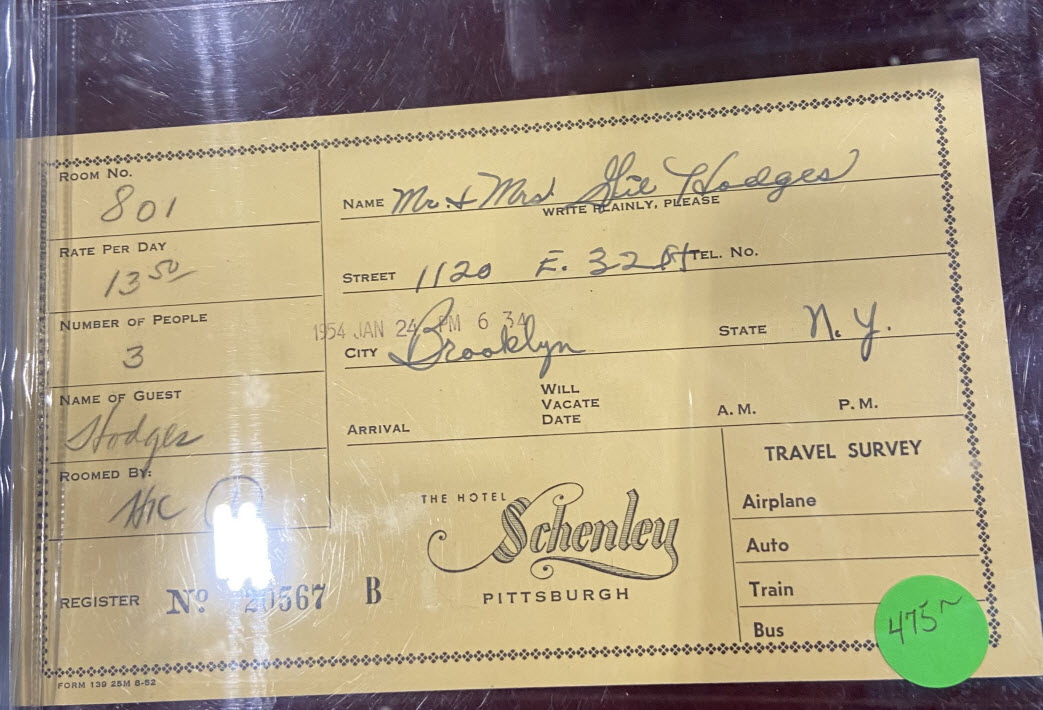 ROOM NO.
801
RATE PER DAY
13 50
NUMBER OF PEOPLE
3
NAME OF GUEST
Hodges
ROOMED BY:
REGISTER No 20567 B
NAME Mr. & Mrs. Gil Hodges
WRITE PLAINLY, PLEASE
STREET 1120 E. 32 St TEL. NO.
1954 JAN 24 PM 6 34
CITY Brooklyn STATE N.Y.
ARRIVAL WILL VACATE DATE A.M. P.M.
THE HOTEL
Schenley
PITTSBURGH
TRAVEL SURVEY
Airplane
Auto
Train
Bus
475
FORM 139 25M 8-52